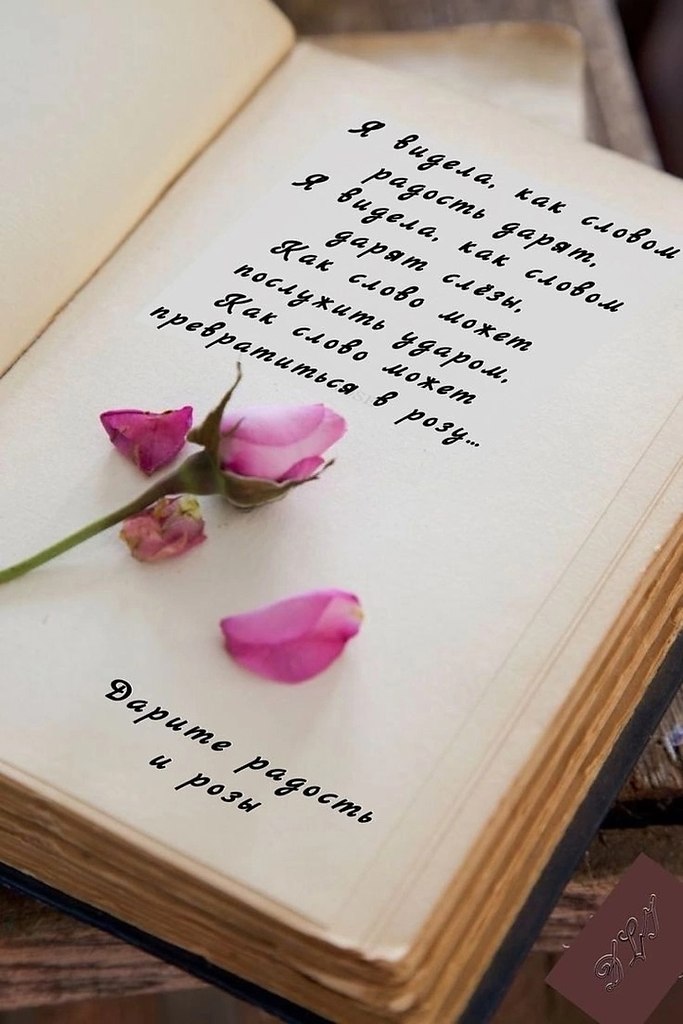 Я видела, как словом
радость дарят,
Я видела, как словом
дарят слёзы,
Как слово может
послужить ударом,
Как слово может
превратиться в розу...
Дарите радость
и розы